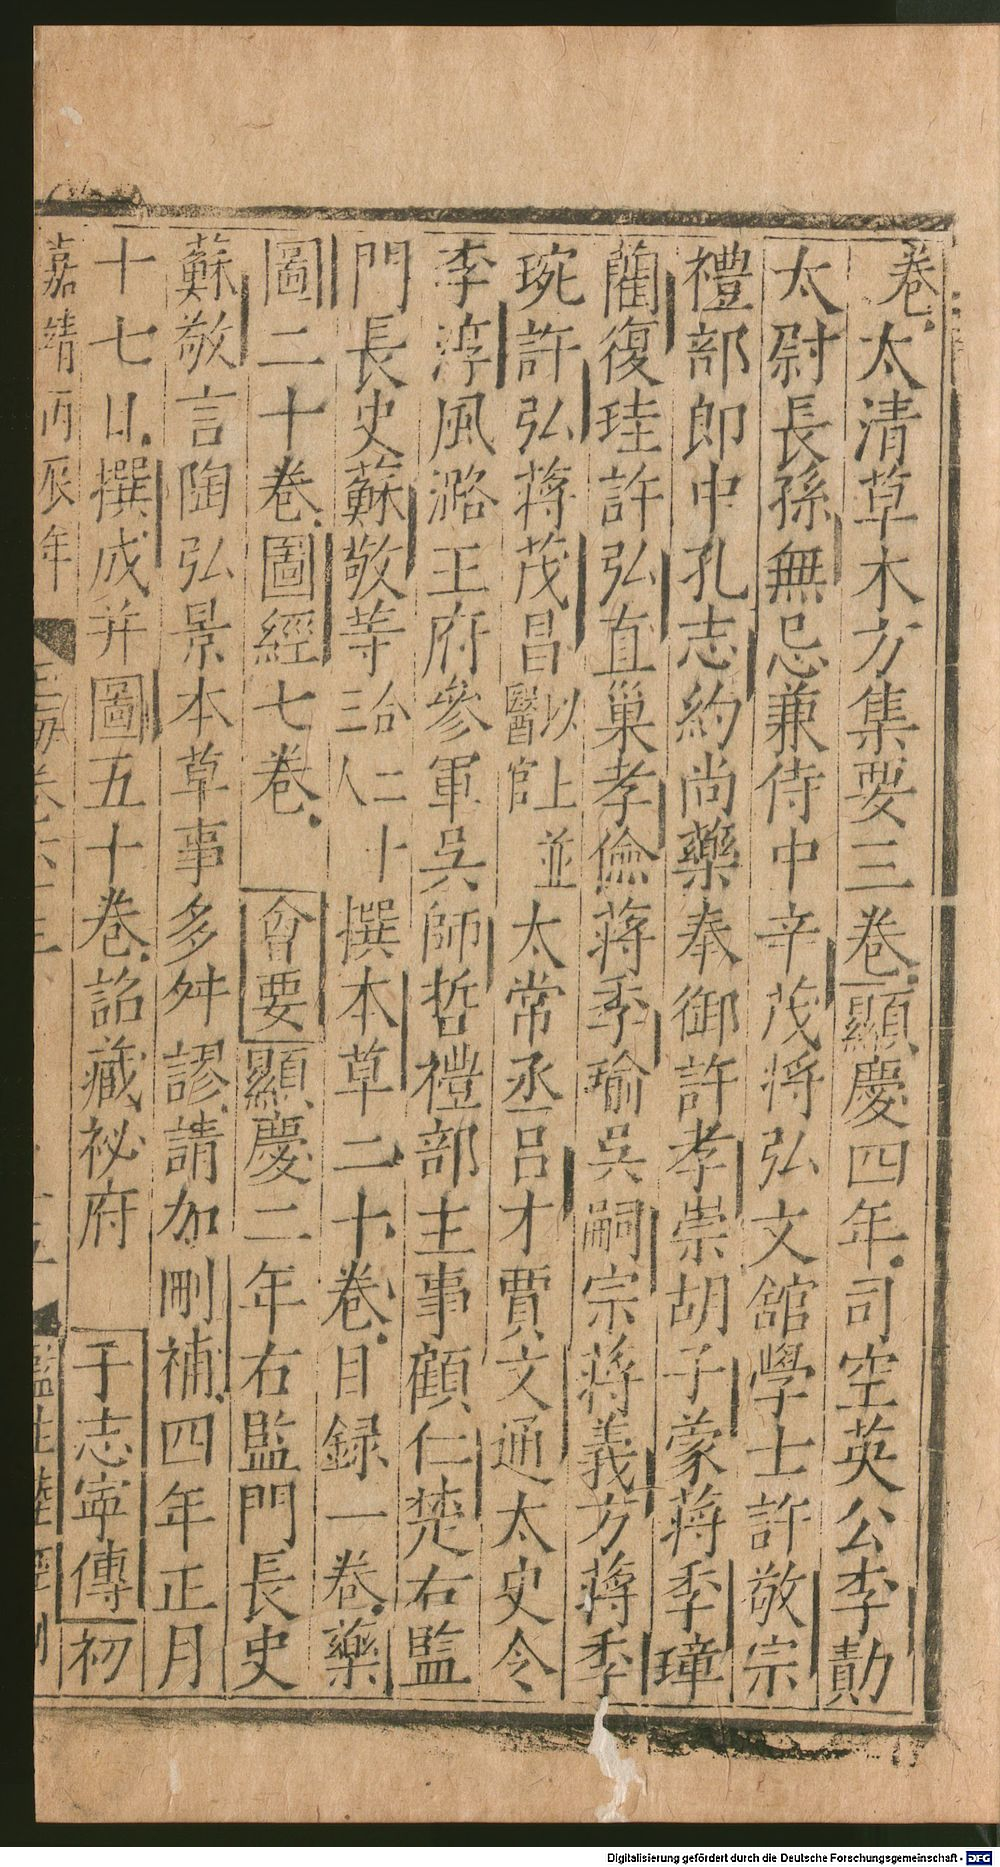 卷太清草木方集要三卷顯慶四年司空英公李勣
太尉長孫無忌兼侍中辛茂將弘文館學士許敬宗
禮部郎中孔志約尚藥奉御許孝崇胡子蒙蔣季璋
藺復珪許弘直巢孝儉蔣季瑜吳嗣宗蔣義方蔣季
琬許弘蔣茂昌以上並醫官太常丞呂才賈文通太史令
李淳風潞王府參軍吳師哲禮部主事顧仁楚右監
門長史蘇敬等二十三人撰本草二十卷目録一卷藥
圖二十卷圖經七卷會要顯慶二年右監門長史
蘇敬言陶弘景本草事多舛謬請加刪補四年正月
十七日撰成并圖五十卷詔藏祕府于志寧傳初
嘉靖丙辰年
Digitalisierung gefördert durch die Deutsche Forschungsgemeinschaft - DFG